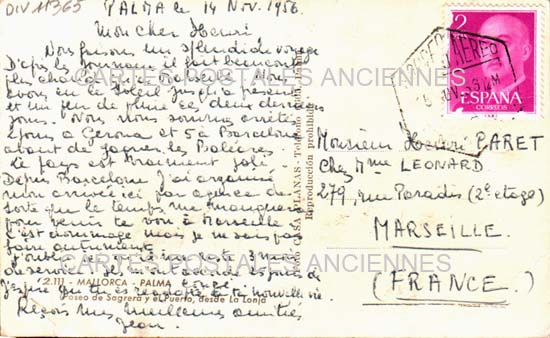 DIV 11365
PALMA le 14 Nov. 1956.
Mon cher Henri
Nous faisons un splendide voyage
D'après le journaux il fait beaucoup
plus chaud
avons eu le soleil jusqu'à présent
et un peu de pluie ces deux derniers
jours. Nous nous sommes arrêtés
à Gerona et 5 à Barcelone
avant de gagner les Baléares
le pays est vraiment joli
Depuis Barcelone j'ai organisé
mon arrivée ici par agence de
sorte que le temps me manquera
pour venir te voir à Marseille
C'est dommage mais je ne sais pas
faire autrement.
de service
J'espère que tu es
nouvelle vie
Reçois mes meilleures amitiés
Jean.
CARTES POSTALES ANCIENNES
CARTES POSTALES ANCIENNES
CARTES POSTALES ANCIENNES
2.111 - MALLORCA - PALMA
(Paseo de Sagrera y el Puerto, desde La Lonja
Foto CASA PLANAS - Teléfono
Reproducción prohibida
2
PTAS
ESPAÑA
CORREOS
CORREO AEREO
Monsieur Henri PARET
chez Mme LEONARD
279, rue Paradis (2e etage)
MARSEILLE.
(FRANCE.)